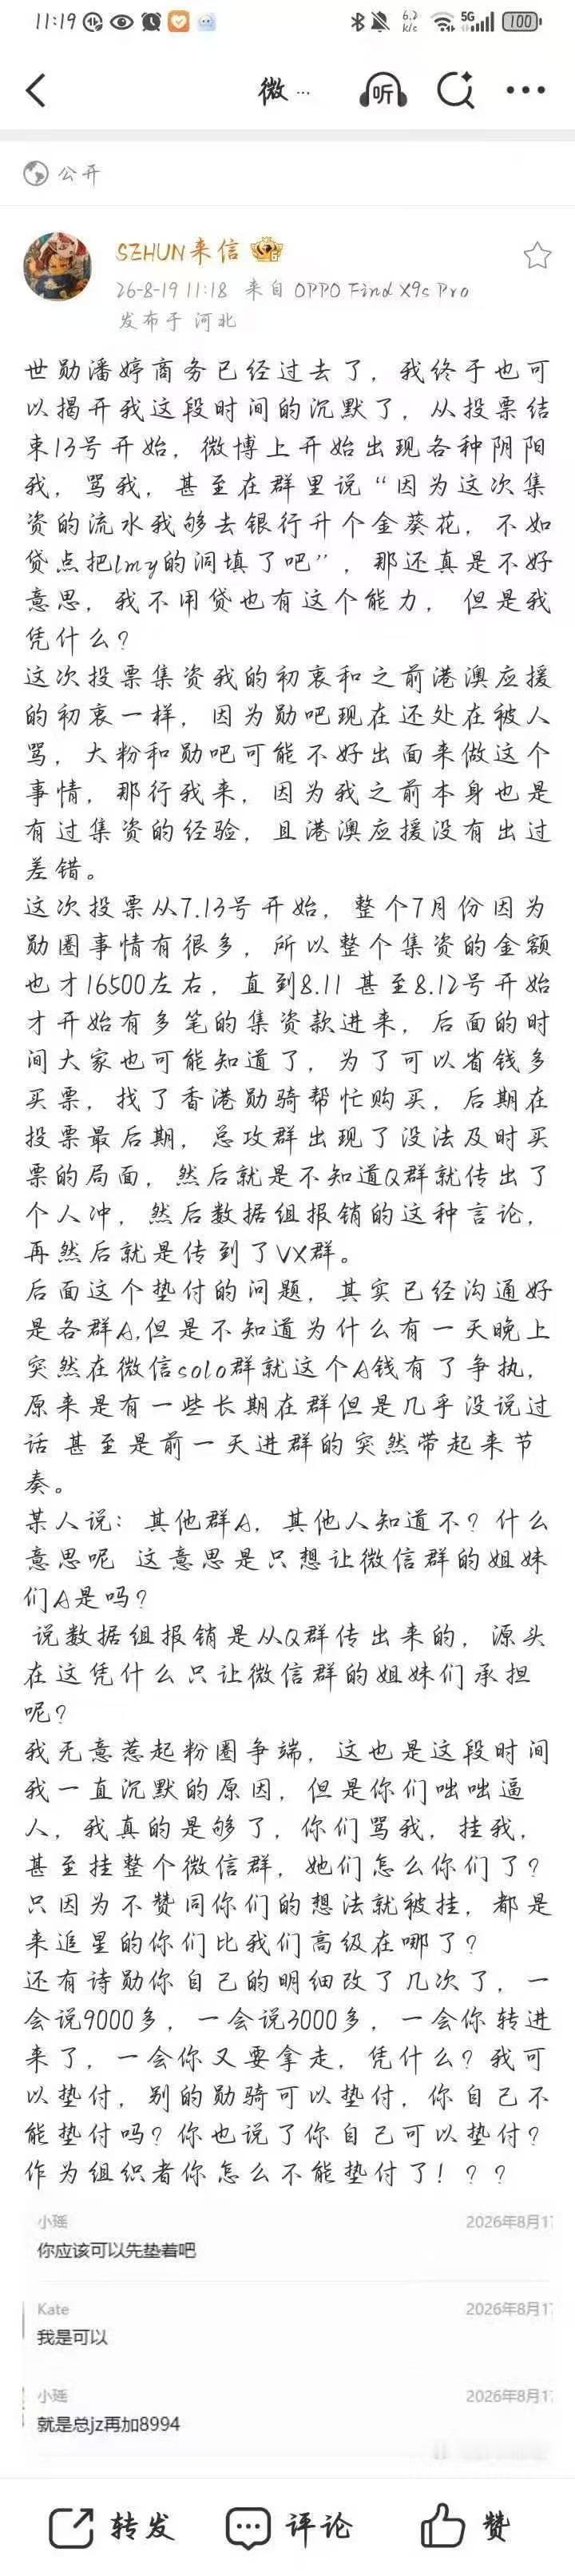 11:19
6.2 K/s 5G 100
微… 听
公开
SZHUN来信
26-8-19 11:18 来自 OPPO Find X9s Pro
发布于 河北
世勋潘婷商务已经过去了，我终于也可
以揭开我这段时间的沉默了，从投票结
束13号开始，微博上开始出现各种阴阳
我，骂我，甚至在群里说“因为这次集
资的流水我够去银行升个金葵花，不如
贷点把lmy的洞填了吧”，那还真是不好
意思，我不用贷也有这个能力，但是我
凭什么？
这次投票集资我的初衷和之前港澳应援
的初衷一样，因为勋吧现在还处在被人
骂，大粉和勋吧可能不好出面来做这个
事情，那行我来，因为我之前本身也是
有过集资的经验，且港澳应援没有出过
差错。
这次投票从7.13号开始，整个7月份因为
勋圈事情有很多，所以整个集资的金额
也才16500左右，直到8.11 甚至8.12号开始
才开始有多笔的集资款进来，后面的时
间大家也可能知道了，为了可以省钱多
买票，找了香港勋骑帮忙购买，后期在
投票最后期，总攻群出现了没法及时买
票的局面，然后就是不知道Q群就传出了
个人冲，然后数据组报销的这种言论，
再然后就是传到了VX群。
后面这个垫付的问题，其实已经沟通好
是各群A,但是不知道为什么有一天晚上
突然在微信solo群就这个A钱有了争执，
原来是有一些长期在群但是几乎没说过
话 甚至是前一天进群的突然带起来节
奏。
某人说：其他群A，其他人知道不？什么
意思呢 这意思是只想让微信群的姐妹
们A是吗？
说数据组报销是从Q群传出来的，源头
在这凭什么只让微信群的姐妹们承担
呢？
我无意惹起粉圈争端，这也是这段时间
我一直沉默的原因，但是你们咄咄逼
人，我真的是够了，你们骂我，挂我，
甚至挂整个微信群，她们怎么你们了？
只因为不赞同你们的想法就被挂，都是
来追星的你们比我们高级在哪了？
还有诗勋你自己的明细改了几次了，一
会说9000多，一会说3000多，一会你转进
来了，一会你又要拿走，凭什么？我可
以垫付，别的勋骑可以垫付，你自己不
能垫付吗？你也说了你自己可以垫付？
作为组织者你怎么不能垫付了！？？
小瑶 2026年8月17
你应该可以先垫着吧
Kate 2026年8月17
我是可以
小瑶 2026年8月17
就是总jz再加8994
转发 评论 赞